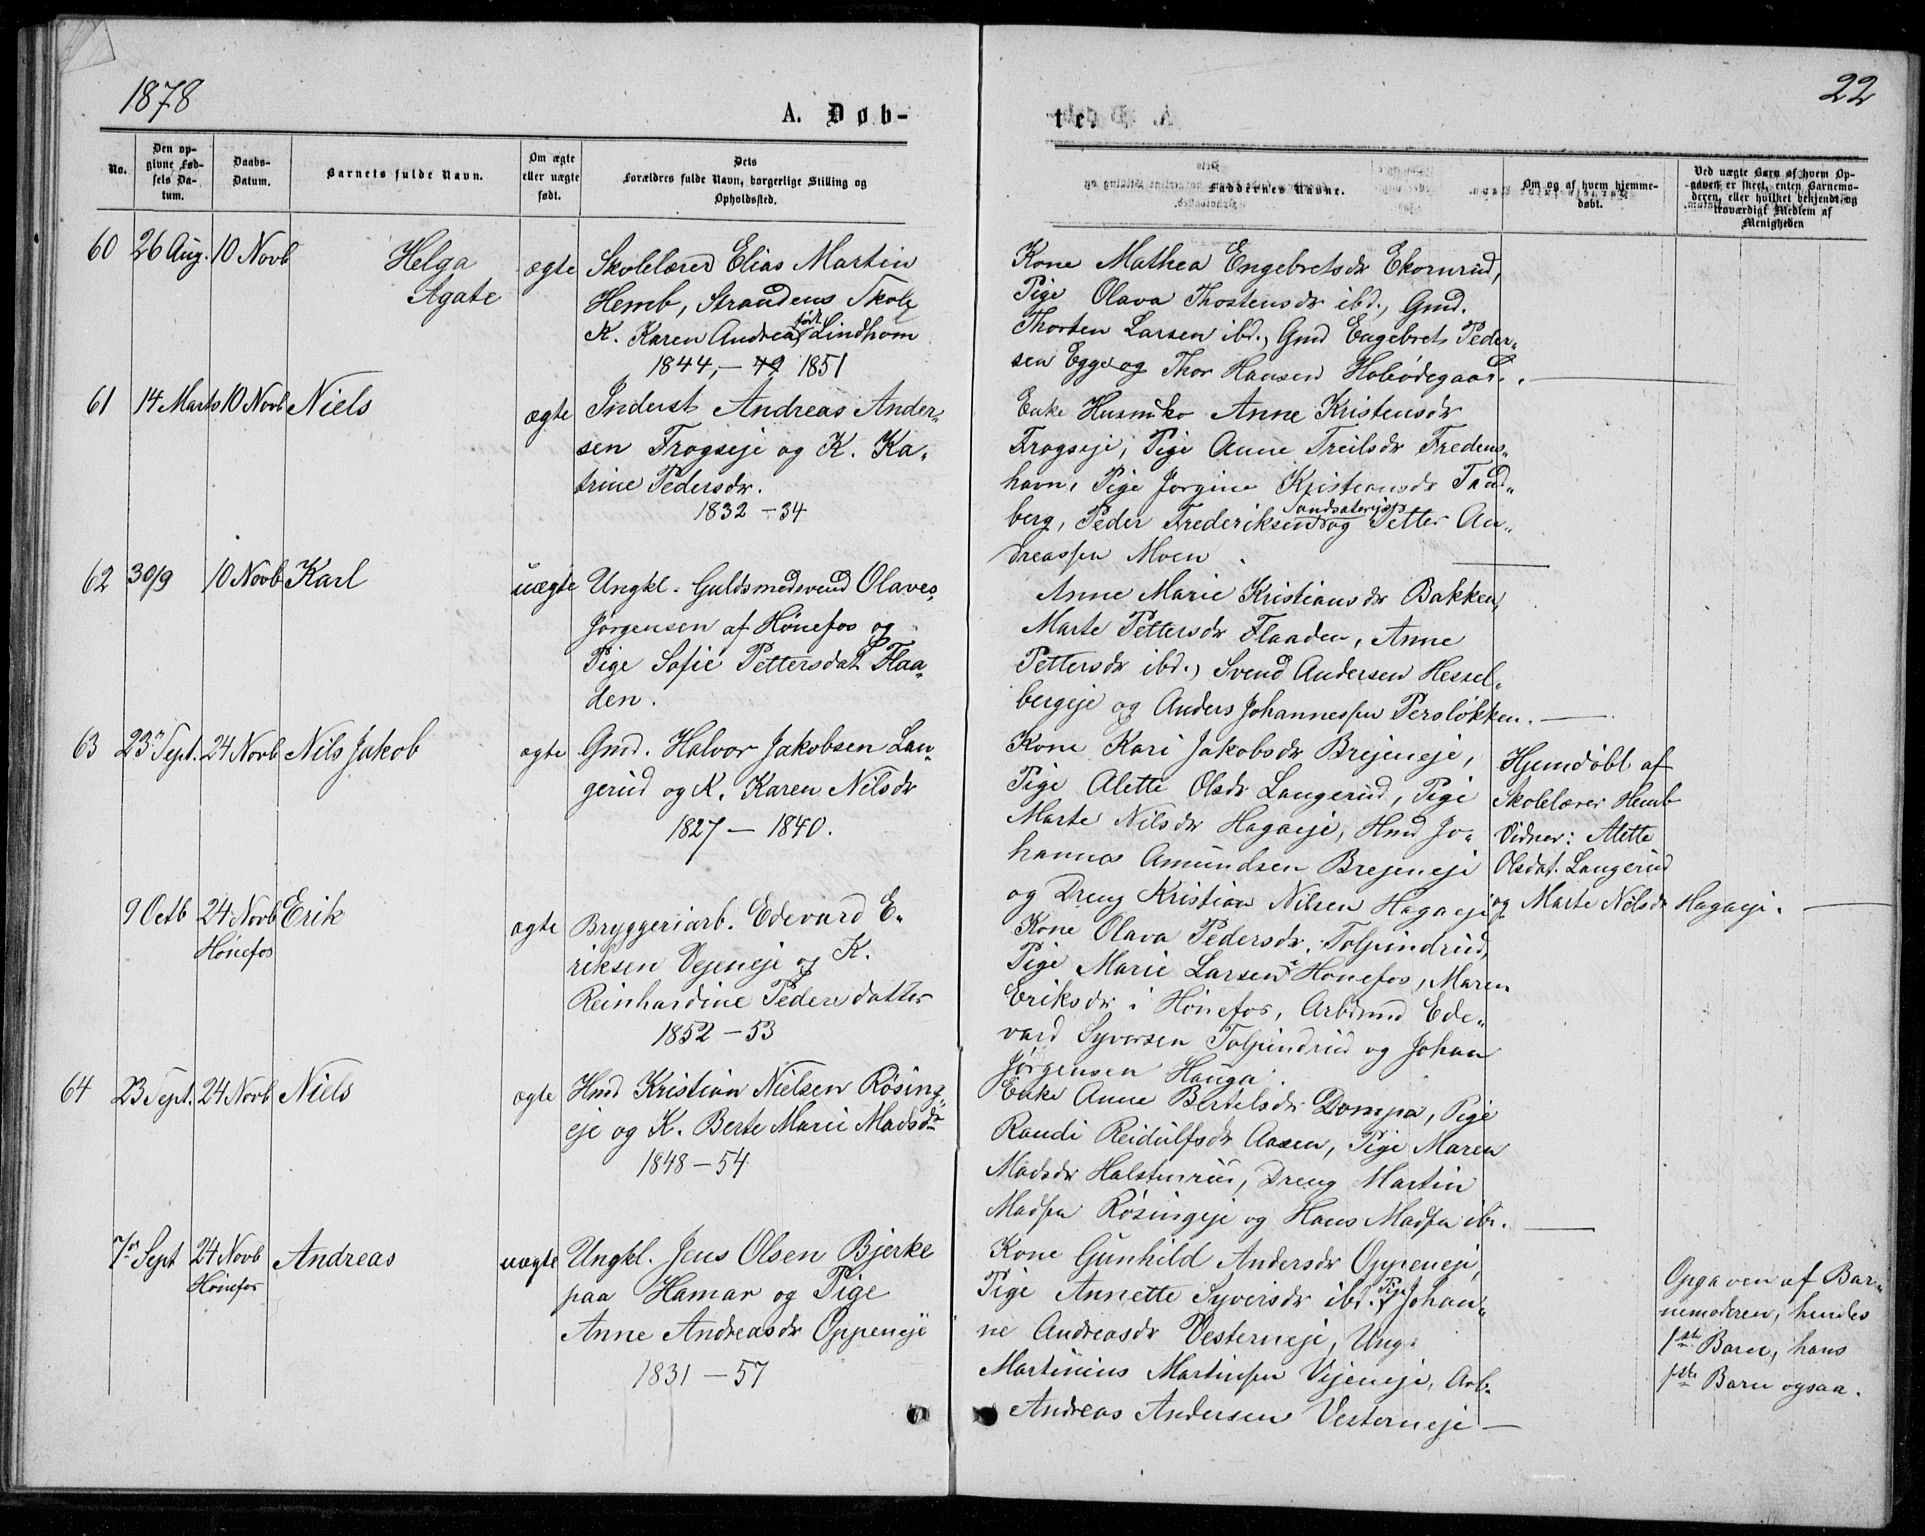 1878
22
A. Døb-
te.
No.
Den op-
givne Fød-
sels Da-
tum.
Daabs-
Datum.
Barnets fulde Navn.
Om ægte
eller uægte
født.
Dets
Forældres fulde Navn, borgerlige Stilling og
Opholdssted.
Faddernes Navne.
Om og af hvem hjemme-
døbt.
Ved uægte Barn af hvem Op-
gaven er skeet, enten Barnemo-
deren, eller hvilket bekjendt og
troværdigt Medlem af
Menigheden
60 26 Aug. 10 Novb Helga
Agate
ægte
Skolelærer Elias Martin
Hemb, Strandens Skole
K. Karen Andrea født Lindhom
1844, - 49 1851
Kone Mathea Engebretsdr Ekornrud,
Pige Olava Thostensdr ibd., Gmd.
Thorsten Larsen ibd., Gmd Engebret Peder-
sen Egge og Thor Hansen Hobødegaar.
61 14 Marts 10 Novb Niels
ægte
Inderst Andreas Ander-
sen Frogseje og K. Ka-
trine Pedersdr.
1832 - 34
Enke Husmko Anne Kristensdr
Frogseje, Pige Anne Treilsdr Fredens-
havn, Pige Jorgine Kristiansdr
berg, Peder Frederiksen og Petter An-
dreassen Moen.
62 30/9 10 Novb Karl
uægte
Ungkl. Guldsmedsvend Olaves
Jørgensen af Hønefos og
Pige Sofie Pettersdat Flaa-
den.
Anne Marie Kristiansdr Bakken,
Marte Pettersdr Flaaden, Anne
Pettersdr ibd., Svend Andersen Hessel-
bergeje og Anders Johannessen Persløkken.
63 23 Sept. 24 Novb Nils Jakob
ægte
Gmd. Halvor Jakobsen Lan-
gerud og K. Karen Nilsdr
1827 - 1840.
Kone Kari Jakobsdr Brejeneje,
Pige Alette Olsdr Langerud, Pige
Marte Nilsdr Hagaeje, Hmd Jo-
hannes Amundsen Brejeneje
og Dreng Kristian Nilsen Hagaeje
Hjemdøbt af
Skolelærer Hemb
Vidner: Alette
Olsdat. Langerud
og Marte Nilsdr Hagaeje.
9 Octb 24 Novb Erik
Hønefos
ægte
Bryggeriarb. Edevard E-
riksen Vejeneje og K.
Reinhardine Pedersdatter
1852 - 53
Kone Olava Pedersdr. Tolpindrud,
Pige Marie Larsen i Hønefos, Maren
Eriksdr i Hønefos, Arbdmd Ede-
vard Syversen Tolpindrud og Johan
Jørgensen Hauga.
64 23 Sept. 24 Novb Niels
ægte
Hmd Kristian Nielsen Røsing-
eje og K. Berte Marie Madsdr
1848 - 54
Enke Anne Bertelsdr Dompa, Pige
Randi Reidulfsdr Aasen, Pige Maren
Madsdr Halstenrud, Dreng Martin
Madsen Røsingeje og Hans Madsen ibd.
7 Sept 24 Novb Andreas
Hønefos
uægte
Ungkl. Jens Olsen Bjerke
paa Hamar og Pige
Anne Andreasdr Oppeneje
1831 - 57
Kone Gunhild Andersdr Oppeneje,
Pige Annette Syversdr ibd. Pige Johan-
ne Andreasdr Vesterneje, Ung.
Martinius Martinsen Vejeneje, Arb.
Andreas Andersen Vesterneje
Opgaven af Bar-
nemoderen, hendes
1ste Barn, hans
1ste Barn ogsaa.